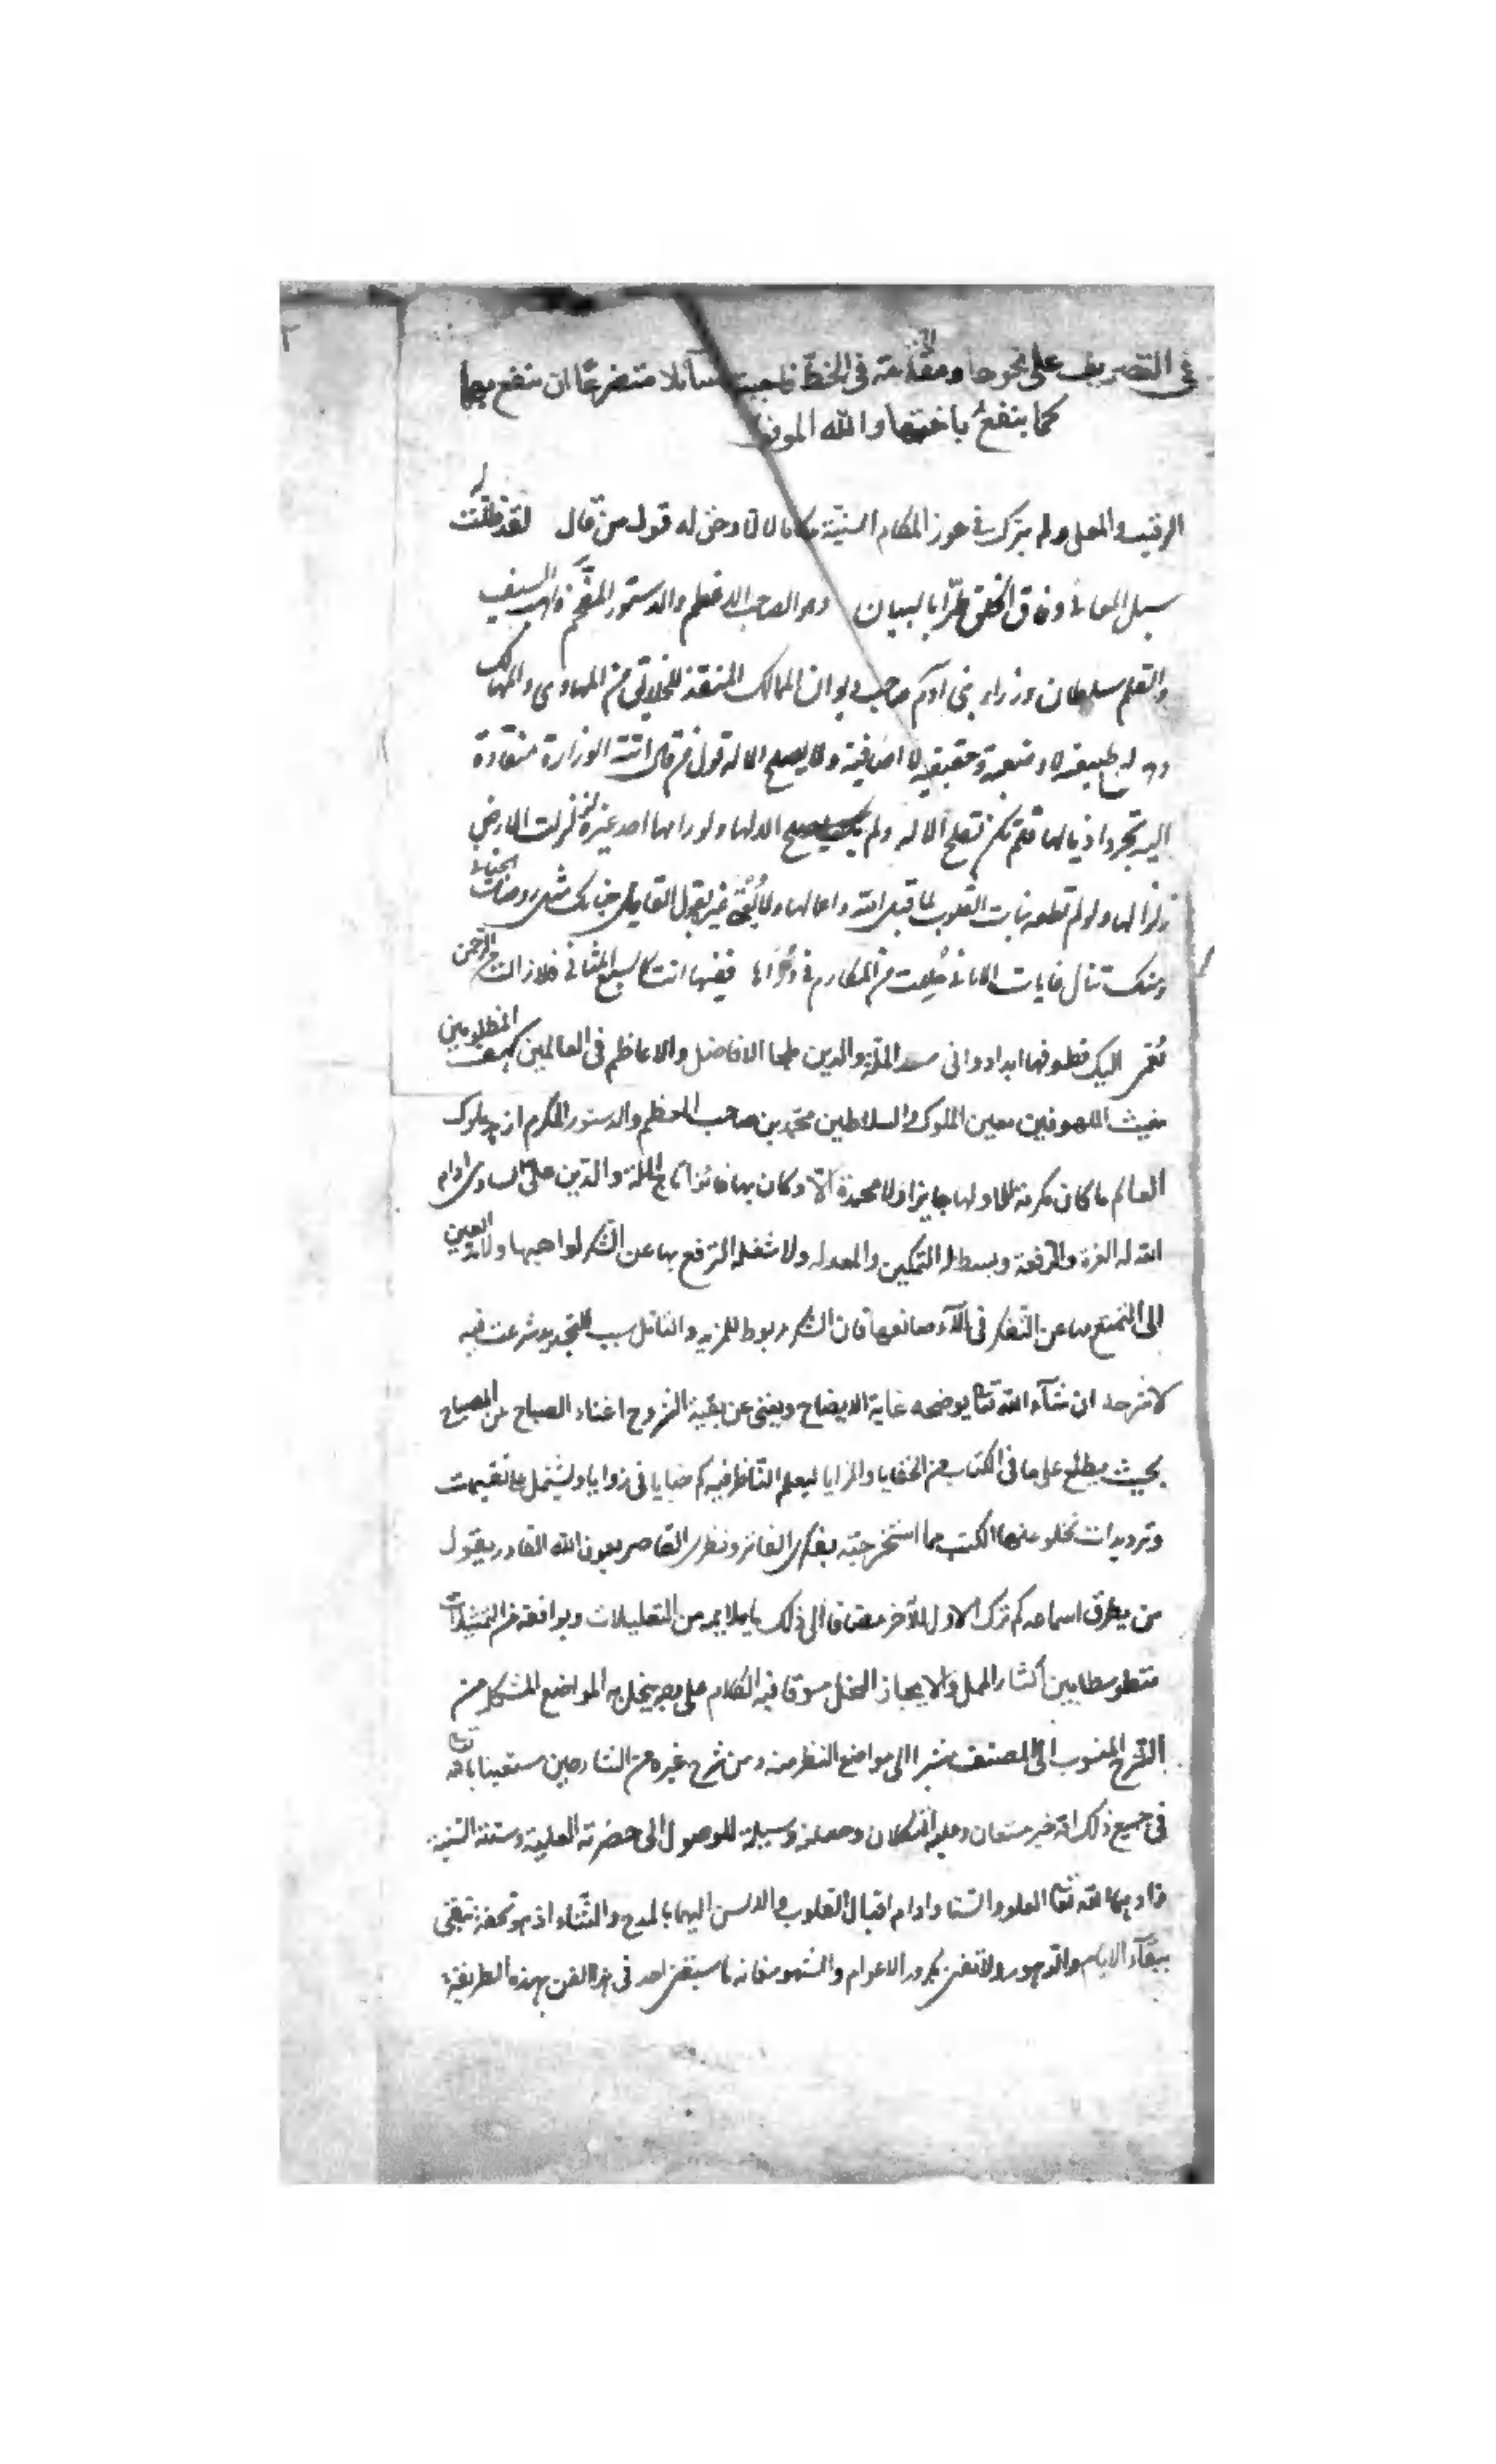 في التصريف على نحوها ومقدّمة في الخطّ فاجبته سآئلا متضرعًا ان ينفع بها
كما ينفع باختها والله الموفق
الرقيب والمعلى ولم يترك في حوز المكارم السنية مكانا لا لا وحق له قول من قال لقد ملكت
سبل المعاني وفاق الخلق طرّا بالبيان وهو الصاحب الاعظم والدستور المفخم واهب السيف
والقلم سلطان وزراء بني آدم صاحب ديوان الممالك المنقذ للخلائق من المهاوى والمهالك
طبيعية لا وحقيقية لا اضافية ولا يصلح الا له قول من قال اتته الوزارة منقادة
اليه تجرر اذيالها فلم تكن تصلح الا له ولم يك يصلح الا لها ولو رامها احد غيره لزلزلت الارض
زلزالها ولو لم تطعه بنات القلوب لما قبل الله اعمالها القايل جنابك مثل روضات الجنان
ومنك تنال غايات الاماني من المكارم في ذراها ففيها انت كالسبع المثاني فلا زالت من الرحمن
اليك قطوفها ابدا دوانى سعد الملة والدين ملجا الافاضل والاعاظم في العالمين كهف المظلومين
مغيث الملهوفين معين الملوك والسلاطين محمد بن صاحب المعظم والدستور المكرم
العالم ما كان مكرمة الا ولها جايزا ولا محمدة الا وكان بها فائزا تاج الملة والدين على الساوى ادام
الله له العزة والرفعة وبسط له التمكين والمعدلة ولا شغله الترفع بها عن الشكر لواهبها ولا
الى التمتع بها عن التفكر في آلاء صانعها فان الشكر مربوط للمزيد والتامل سبب للتجديد شرعت فيه
لاشرحه ان شآء الله تعا يوضحه غاية الايضاح ويغنى عن بقية الشروح اغناء الصباح عن المصباح
بحيث يطلع على ما في الكتاب من الخفايا والمزايا ليعلم الناظر فيه كم خبايا في زوايا ويشتمل على تقسيمات
وترديدات تخلو عنها الكتب مما استخرجته بفكرى الفاتر ونظرى القاصر بعون الله القادر يقول
من يطرق اسماعه كم ترك الاول للآخر مضافا الى ذلك ما يلايمه من التعليلات ويوافقه من التمثيلات
متوسطا بين اكثار الممل والايجاز المخل مسوقا فيه الكلام على وجه ينحل به المواضع المشكل من
الشرح المنسوب الى المصنف مشيرا الى مواضع النظر منه ومن شرح غيره من الشارحين مستعينا بالله تعا
في جميع ذلك انه خير مستعان وعليه التكلان وجعلته وسيلة للوصول الى حضرته العلية وسدته السنية
زادهما الله تعا العلو والسنا وادام اقبال القلوب والالسن اليهما بالمدح والثناء اذ هو تحفة تبقى
ببقآء الايام والدهور ولا تفنى بكرور الاعوام والشهور فانه ما سبقنى احد في هذا الفن بهذه الطريقة